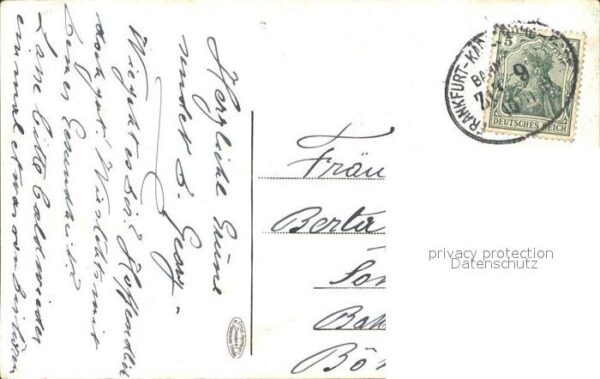 Herzliche Grüße
sendet d. Georg.
Wie geht es dir? Hoffentlich
doch gut! Wie steht's mit
Deiner Gesundheit?
Lasse bitte bald wieder
einmal etwas von
Fräu
Berta
Son
Bah
Bö
FRANKFURT-
BAHN
Z. 9
DEUTSCHES REICH
privacy protection
Datenschutz